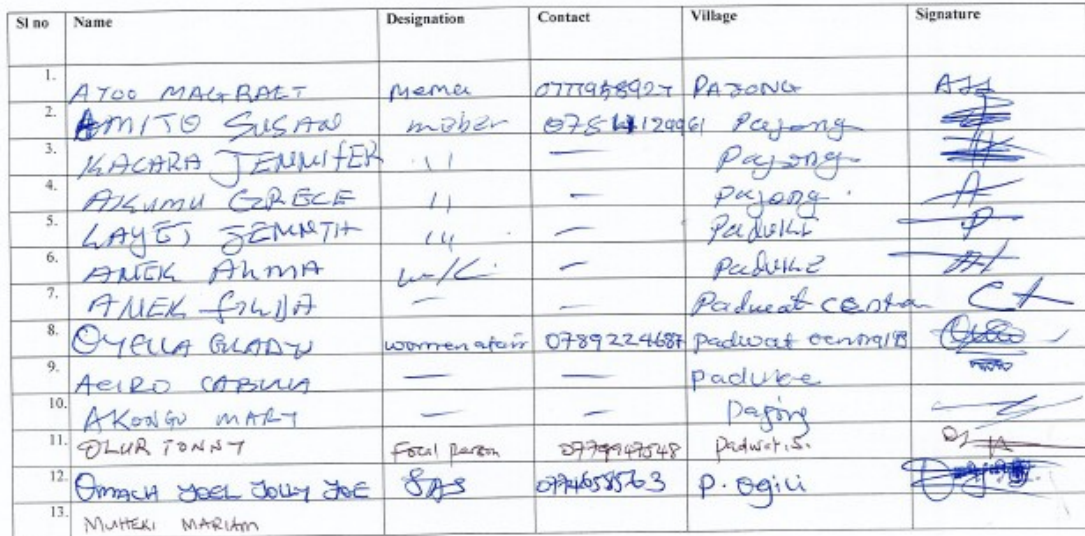 Sl no Name Designation Contact Village Signature
1. ATOO MAGRAET Mema 0777958927 PAJONG
2. AMITO SUSAN mober 0754129961 Pajong
3. KACARA JENNIFER 11 — Pajong
4. AKUMU GRECE 11 — Pajong
5. LAYET JENNETH 14 — Paduke
6. ANEK ALMA w/c — Paduke
7. ANEK — — Padwat centra
8. OYELLA GLADY women afair 0789224687 padwat
9. ACIRO — — paduke
10. AKONGO MARY — — Pajong
11. OLUR TONNY Focal person 0779947548 padwat.S.
12. Omach JOEL JOLLY JOE SAS 0774658563 P. Ogili
13. MUHEKI MARIAM